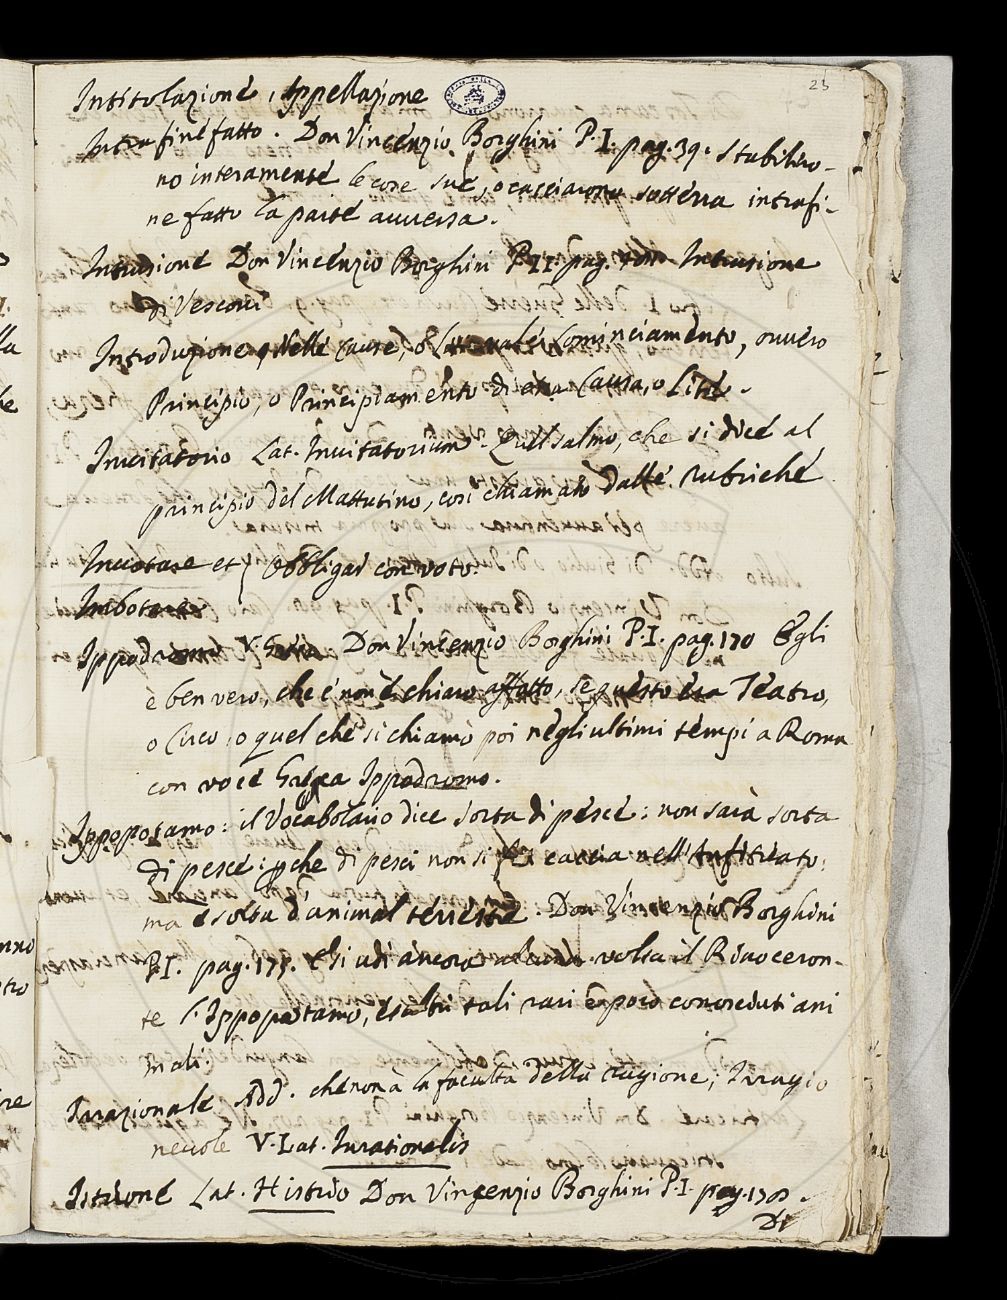 23
Intitolazione, Appellazione
Intrafinefatto. Don Vincenzio Borghini P.I. pag. 39. stabiliro-
no interamente le cose sue, o cacciarono sotterra intrafi-
ne fatto la parte avversa.
Intrusione Don Vincenzio Borghini P.II. pag. Intrusione
di Vescovi
Introduzione, Nelle cause, o Cominciamento, ovvero
Principio, o Principiamento di Causa, o Lite.
Invitatorio Lat. Invitatorium. Quel salmo, che si dice al
principio del Mattutino, così chiamato dalle rubriche
Invotare et} Obbligar con voto.
Imbotare
Ippodromo V. Greca Don Vincenzio Borghini P.I. pag. 170 Egli
è ben vero, che e' non è chiaro affatto, se questo era Teatro,
o Circo, o quel che si chiamò poi negli ultimi tempi a Roma
con voce Greca Ippodromo.
Ippopotamo: il Vocabolario dice sorta di pesce; non sarà sorta
di pesce: pche di pesci non si fa caccia nell'Anfiteatro,
ma è sorta d'animal terreste. Don Vincenzio Borghini
P.I. pag. 175. E vi udi ancora alcuna volta il Rinoceron-
te l'Ippopotamo, e altri tali rari e poco conosciuti ani
mali.
Irrazionale Add. che non à la facultà della ragione; Irragio
nevole V. Lat. Irrationalis
Istrione Lat. Histrio Don Vincenzio Borghini P.I. pag.
Di